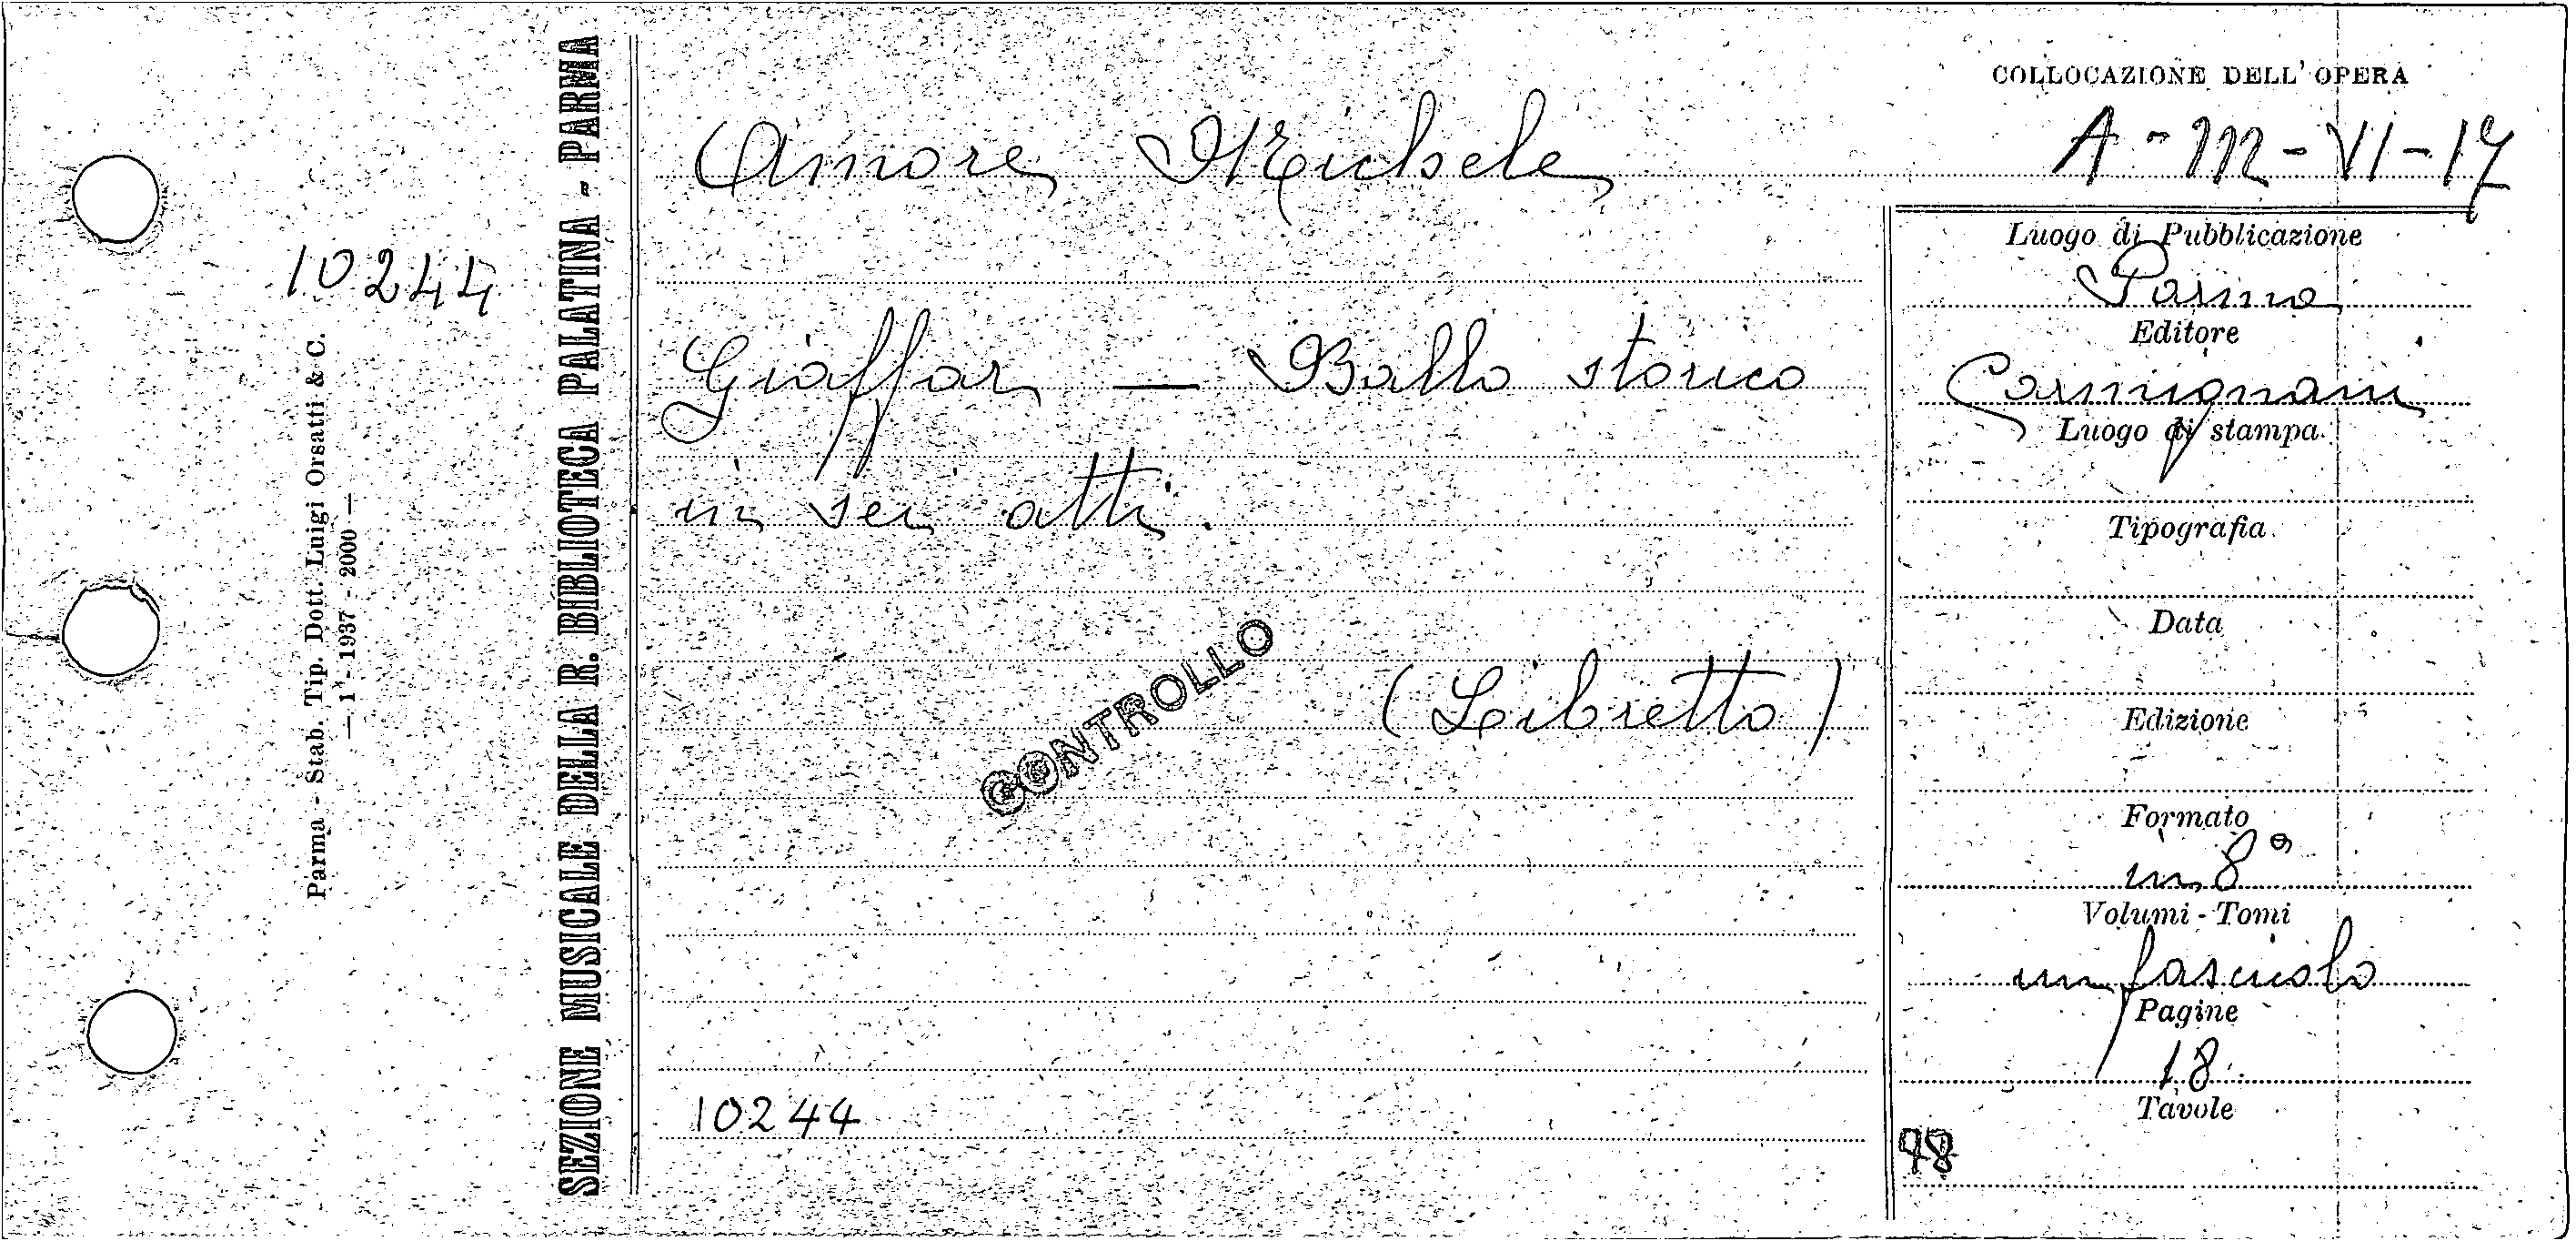 COLLOCAZIONE DELL'OPERA
A - M - VI - 17
Amore Michele
Giaffar — Ballo storico
in sei atti.
(Libretto)
CONTROLLO
10244
10244
Parma - Stab. Tip. Dott. Luigi Orsatti & C.
— 1 - 1937 - 2000 —
SEZIONE MUSICALE DELLA R. BIBLIOTECA PALATINA - PARMA
Luogo di Pubblicazione
Parma
Editore
Carmignani
Luogo di stampa
Tipografia
Data
Edizione
Formato
in 8°
Volumi - Tomi
un fascicolo
Pagine
18
Tavole
98